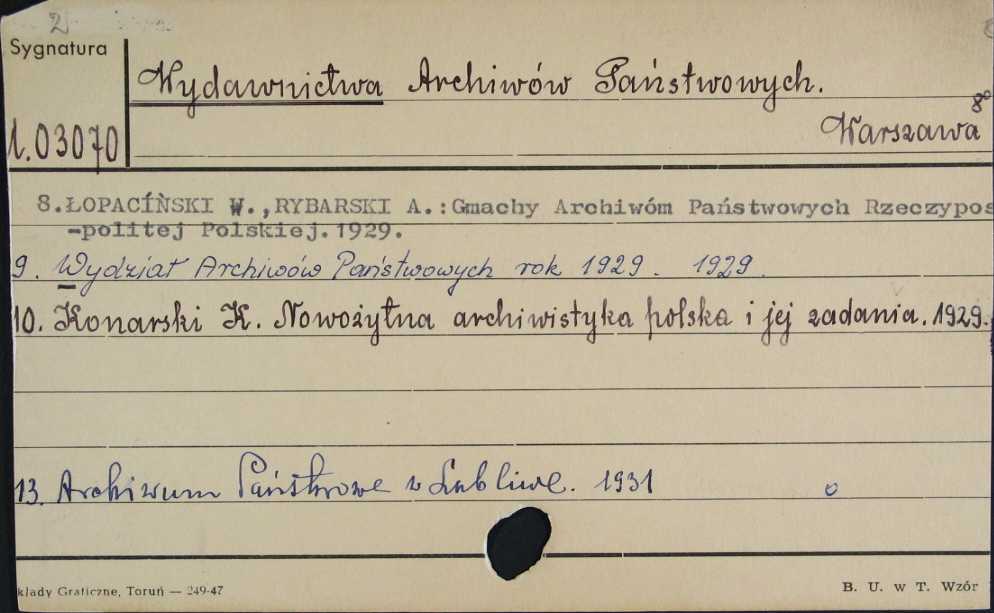 2
Sygnatura
Wydawnictwa Archiwów Państwowych.
8°
Warszawa
1.03070
8.ŁOPACÍŃSKI W.,RYBARSKI A.:Gmachy Archiwóm Państwowych Rzeczypos
-politej Polskiej.1929.
9. Wydział Archiwów Państwowych rok 1929. 1929.
10. Konarski K. Nowożytna archiwistyka polska i jej zadania. 1929.
13. Archiwum Państwowe w Lublinie. 1931
kłady Graficzne, Toruń — 249-47
B. U. w T. Wzór